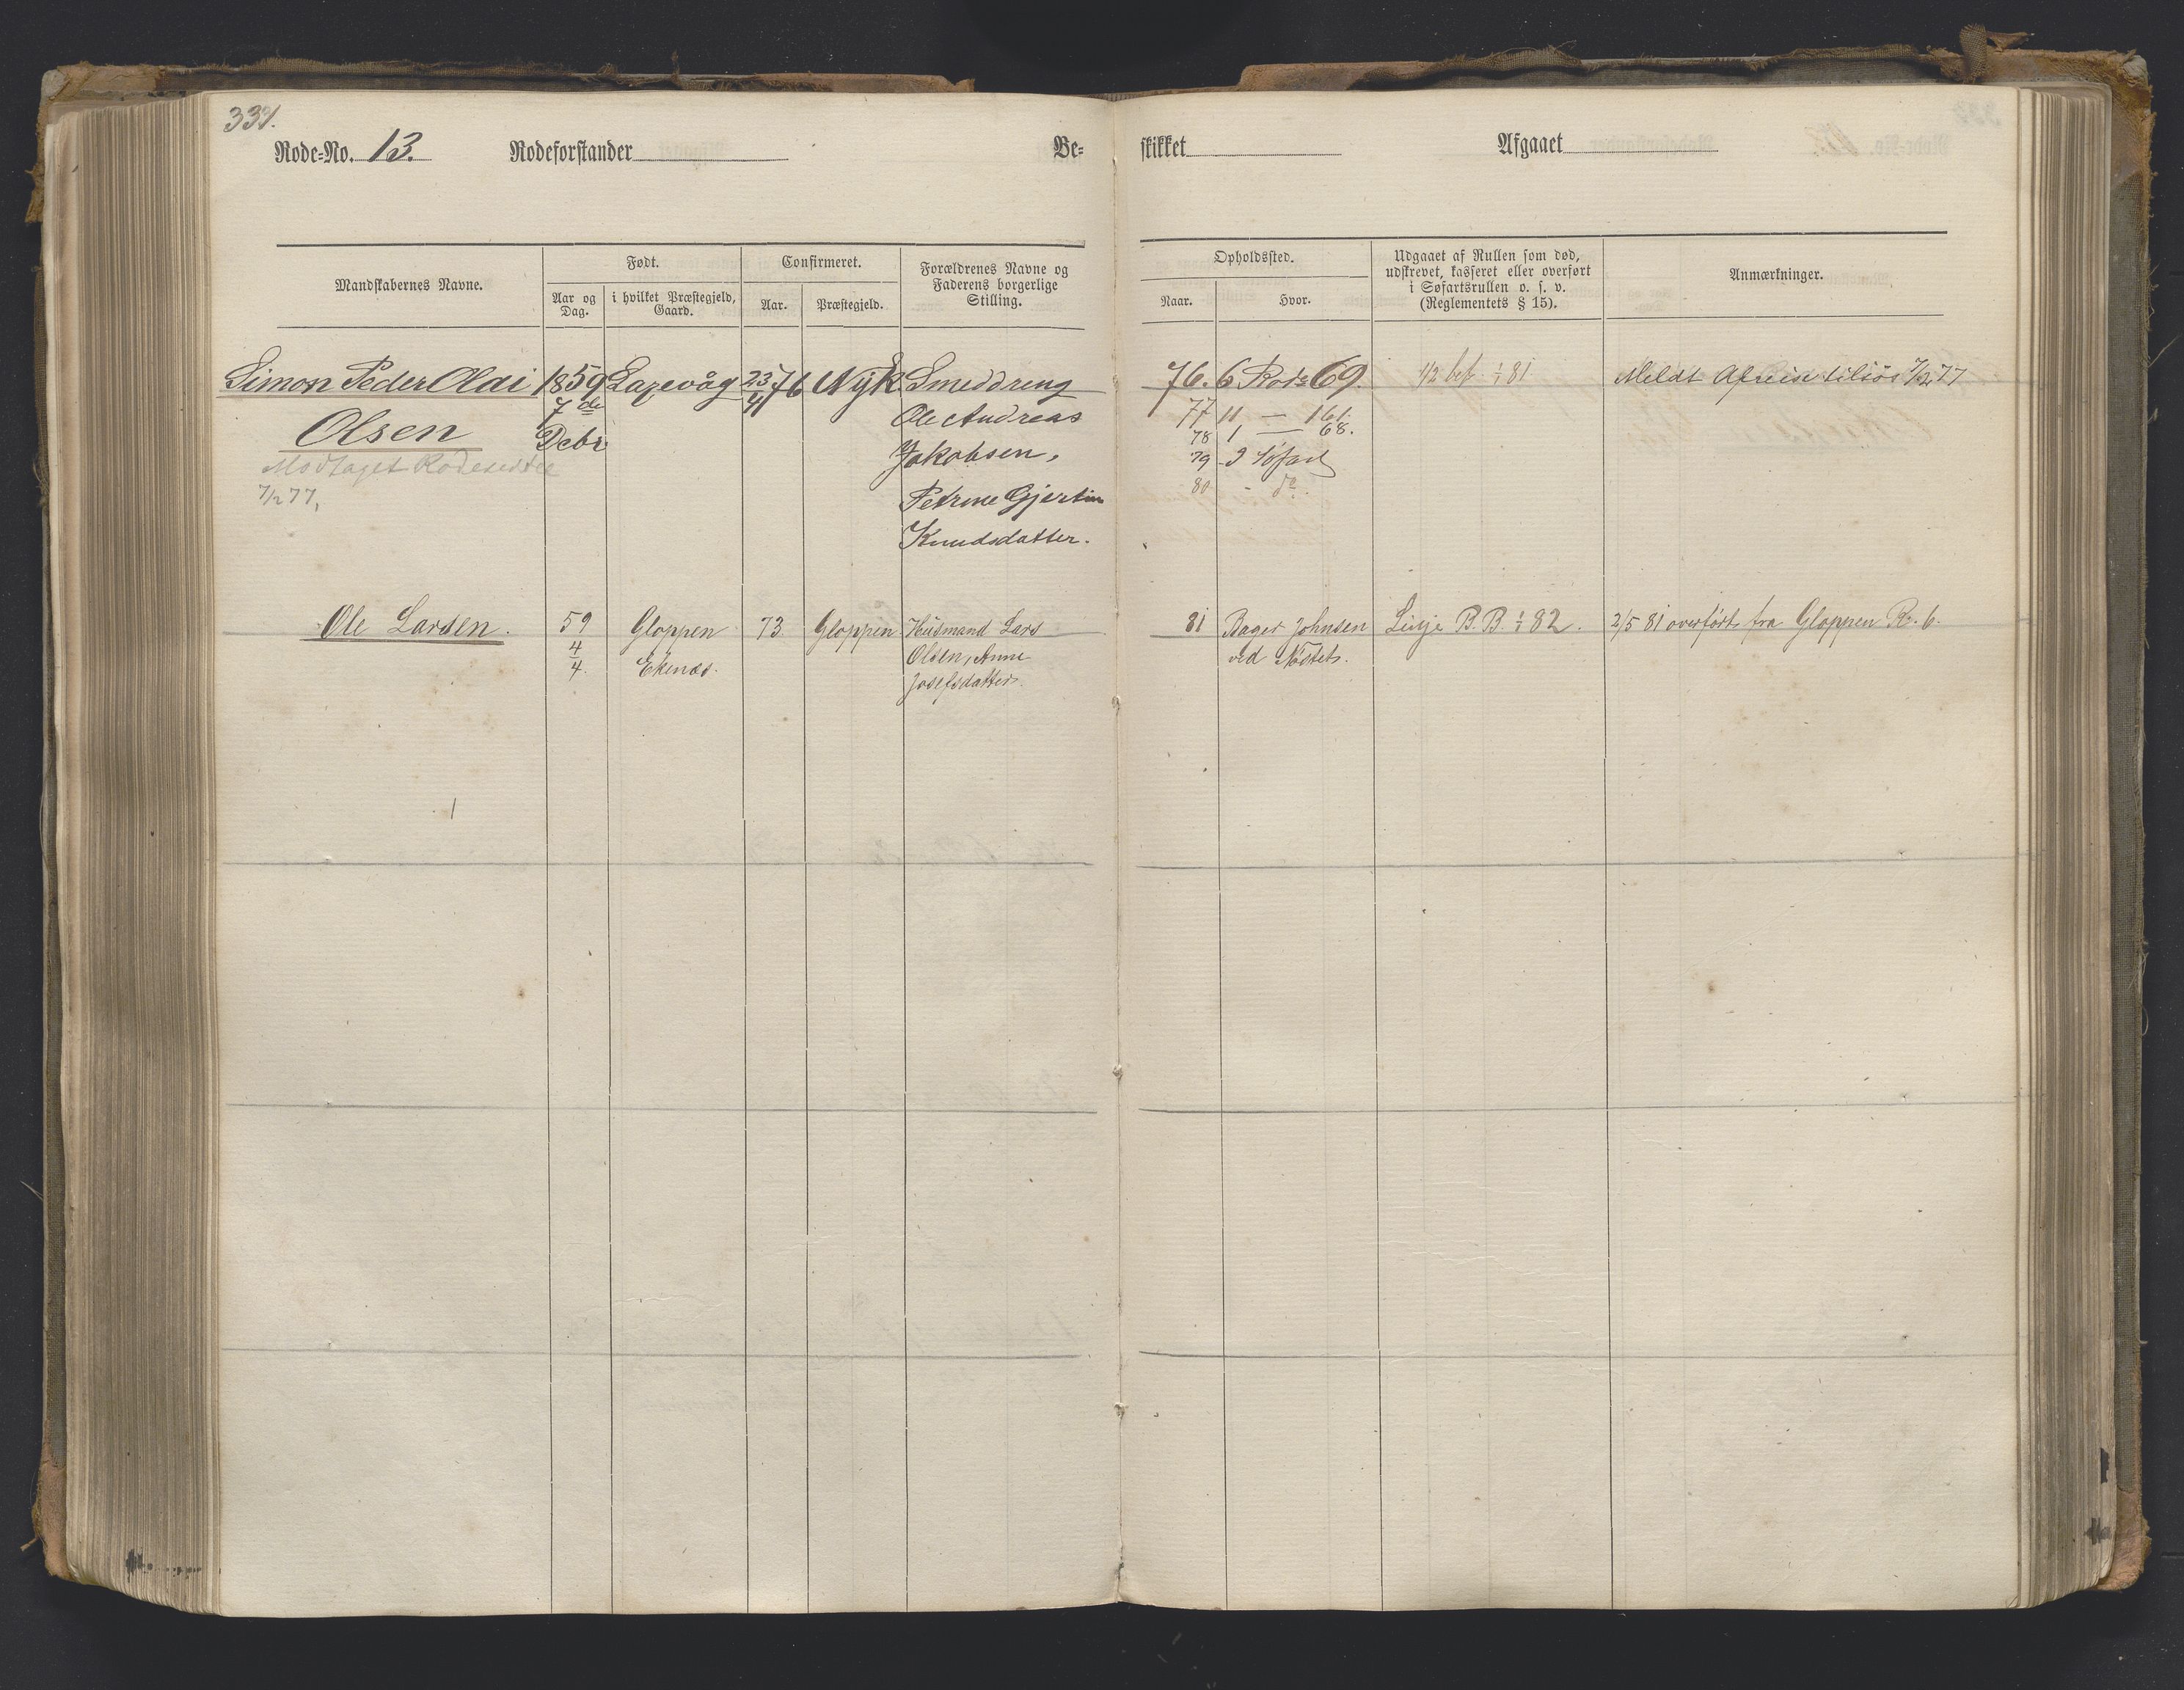 331.
Rode-No. 13. Rodeforstander Be-
skikket Afgaaet
Mandskabernes Navne.
Født.
Aar og Dag.
i hvilket Præstegjeld, Gaard.
Confirmeret.
Aar.
Præstegjeld.
Forældrenes Navne og
Faderens borgerlige
Stilling.
Opholdssted.
Naar.
Hvor.
Udgaaet af Rullen som død,
udskrevet, kasseret eller overført
i Søfartsrullen o. s. v.
(Reglementets § 15).
Anmærkninger.
Simon Peder Olai 1859 Laxevåg 23/4 76 Nyk. Smeddreng
Olsen 7de Ole Andreas
Debr. Jakobsen,
Modtaget Rodeseddel
7/12 77, Petrine Gjertine
Knudsdatter.
76. 6 Rode 69. 1/2 bef. 1/1 81 Meldt Afreise tilsøs 7/12 77
77 11 — 161.
78 1 — 68.
79 - I Søfart
80 - do.
Ole Larsen. 59 Gloppen 73 Gloppen Husmand Lars
4/4. Ekenæs. Olsen, Anne
Josefsdatter.
81 Bager Johnsen Linje B. B. 1/1 82. 2/5 81 overført fra Gloppen R. 6.
ved Nøstet.